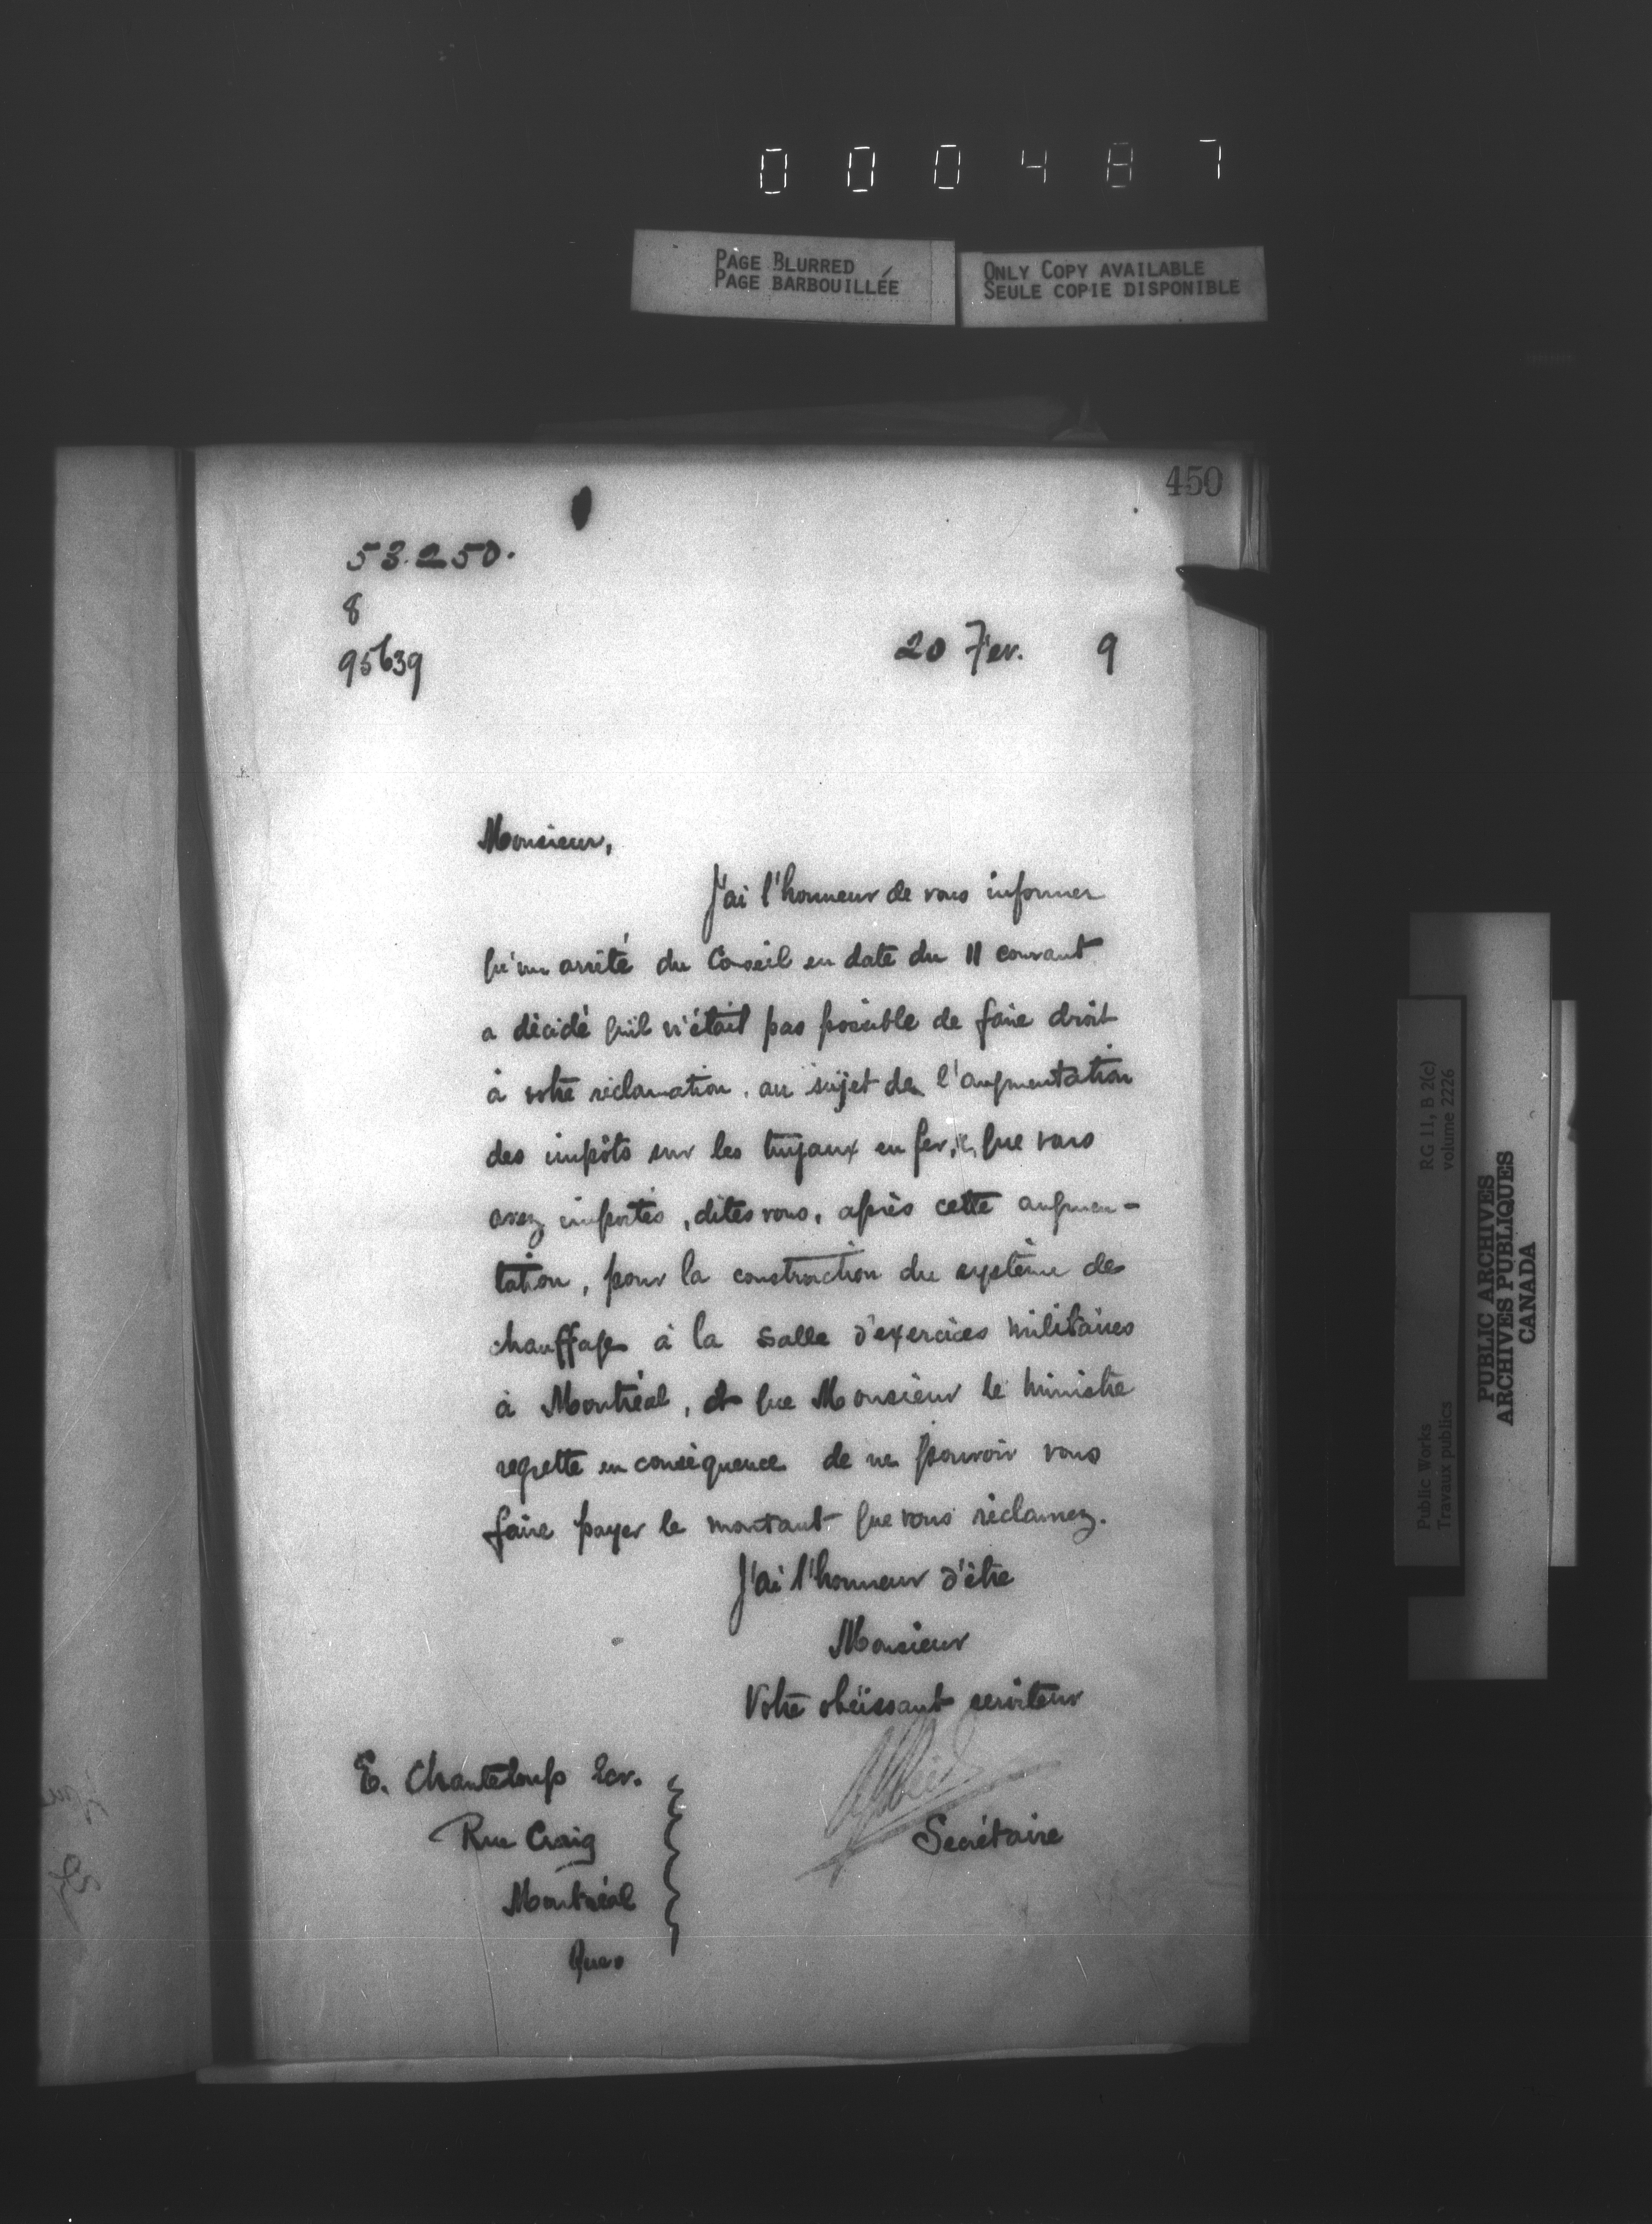 000487
PAGE BLURRED
PAGE BARBOUILLÉE
ONLY COPY AVAILABLE
SEULE COPIE DISPONIBLE
450
53.250.
8
95639
20 Fev. 9
Monsieur,
J'ai l'honneur de vous informer
qu'un arrêté du Conseil en date du 11 courant
a décidé qu'il n'était pas possible de faire droit
à votre réclamation, au sujet de l'augmentation
des impôts sur les tuyaux en fer, que vous
avez importés, dites vous, après cette augmen-
tation, pour la construction du système de
chauffage à la Salle d'exercices militaires
à Montréal, et que Monsieur le ministre
regrette en conséquence de ne pouvoir vous
faire payer le montant que vous réclamez.
J'ai l'honneur d'être
Monsieur
Votre obéissant serviteur
Secrétaire
E. Chanteloup Ecr.
Rue Craig
Montréal
Que.
RG 11, B 2(c)
volume 2226
Public Works
Travaux publics
PUBLIC ARCHIVES
ARCHIVES PUBLIQUES
CANADA